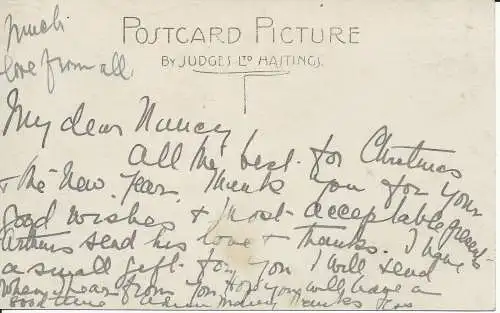 much
love from all.
POSTCARD PICTURE
BY JUDGES LTD HASTINGS.
My dear Nancy
All the best for Christmas
+ the New Year. Thank you for your
good wishes + most acceptable present
Arthur send his love + thanks. I have
a small gift for you I will send
when I hear from you. Hope you will have a
good time